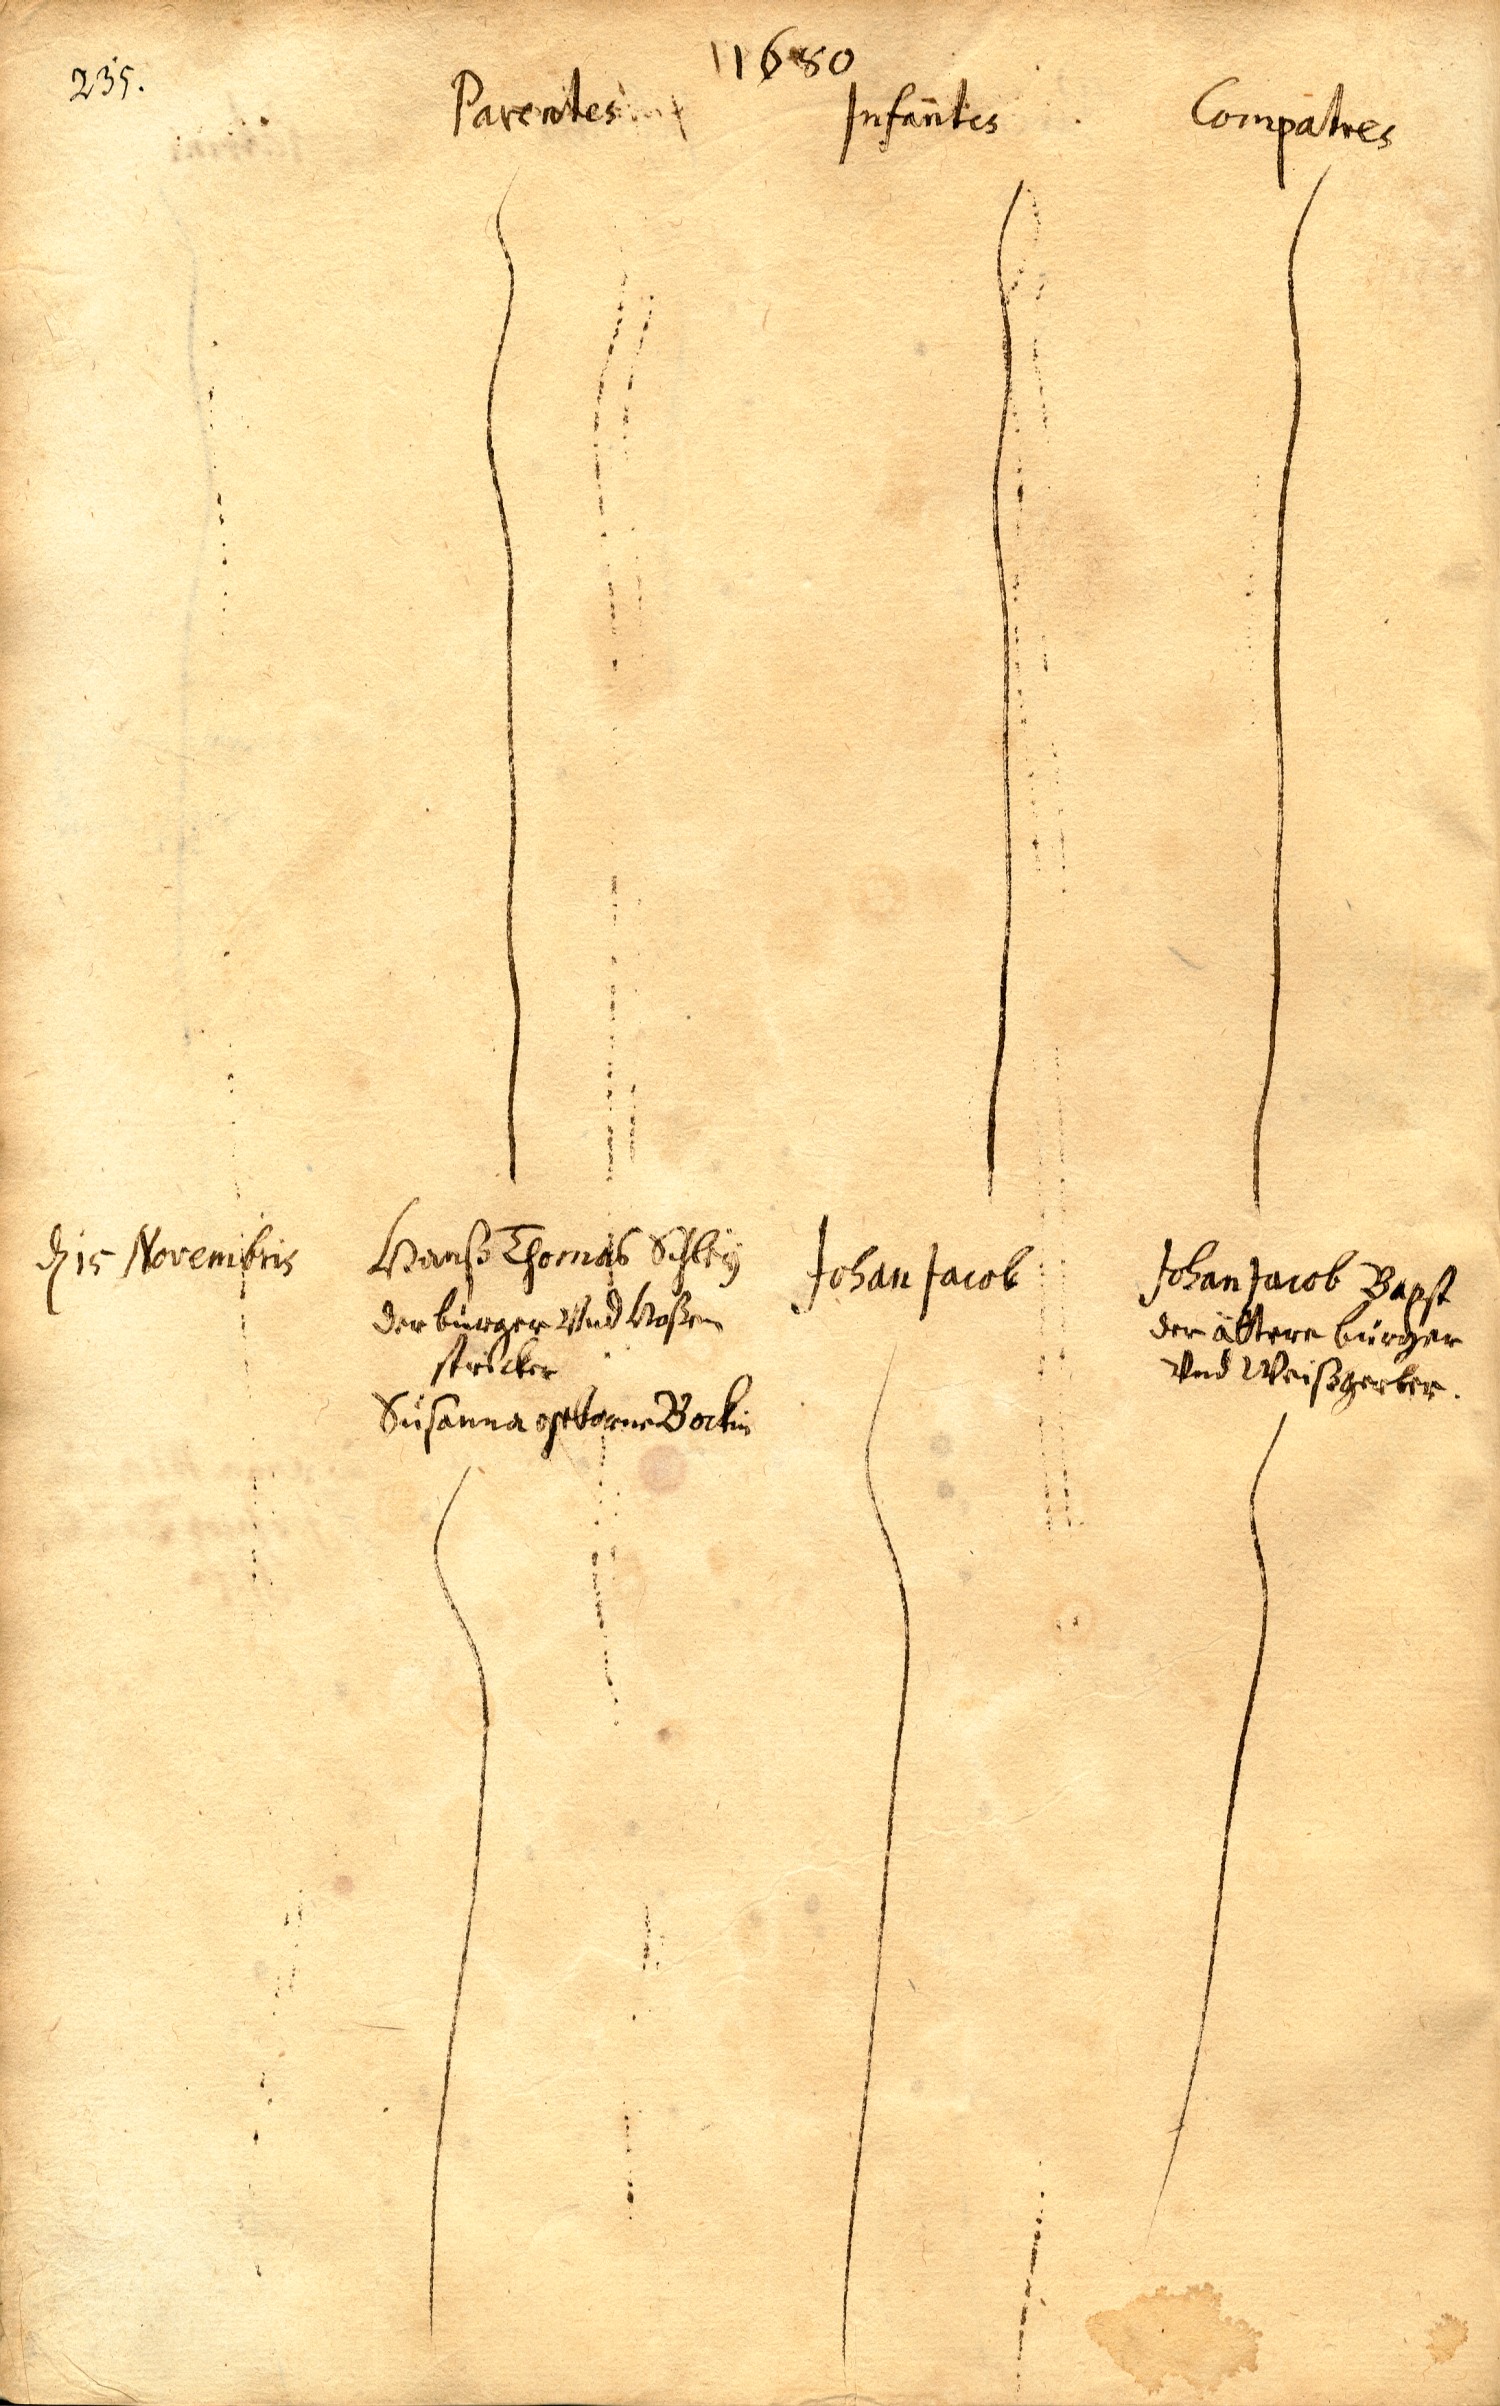 235.
1680
Parentes Infantes Compatres
15 Novembris
Hanß Thomas Schleÿ
der bürger Vnd Hoßen
stricker
Susanna geborne Bockin
Johan Jacob
Johan Jacob Bapst
der ältere bürger
Vnd Weißgerber.